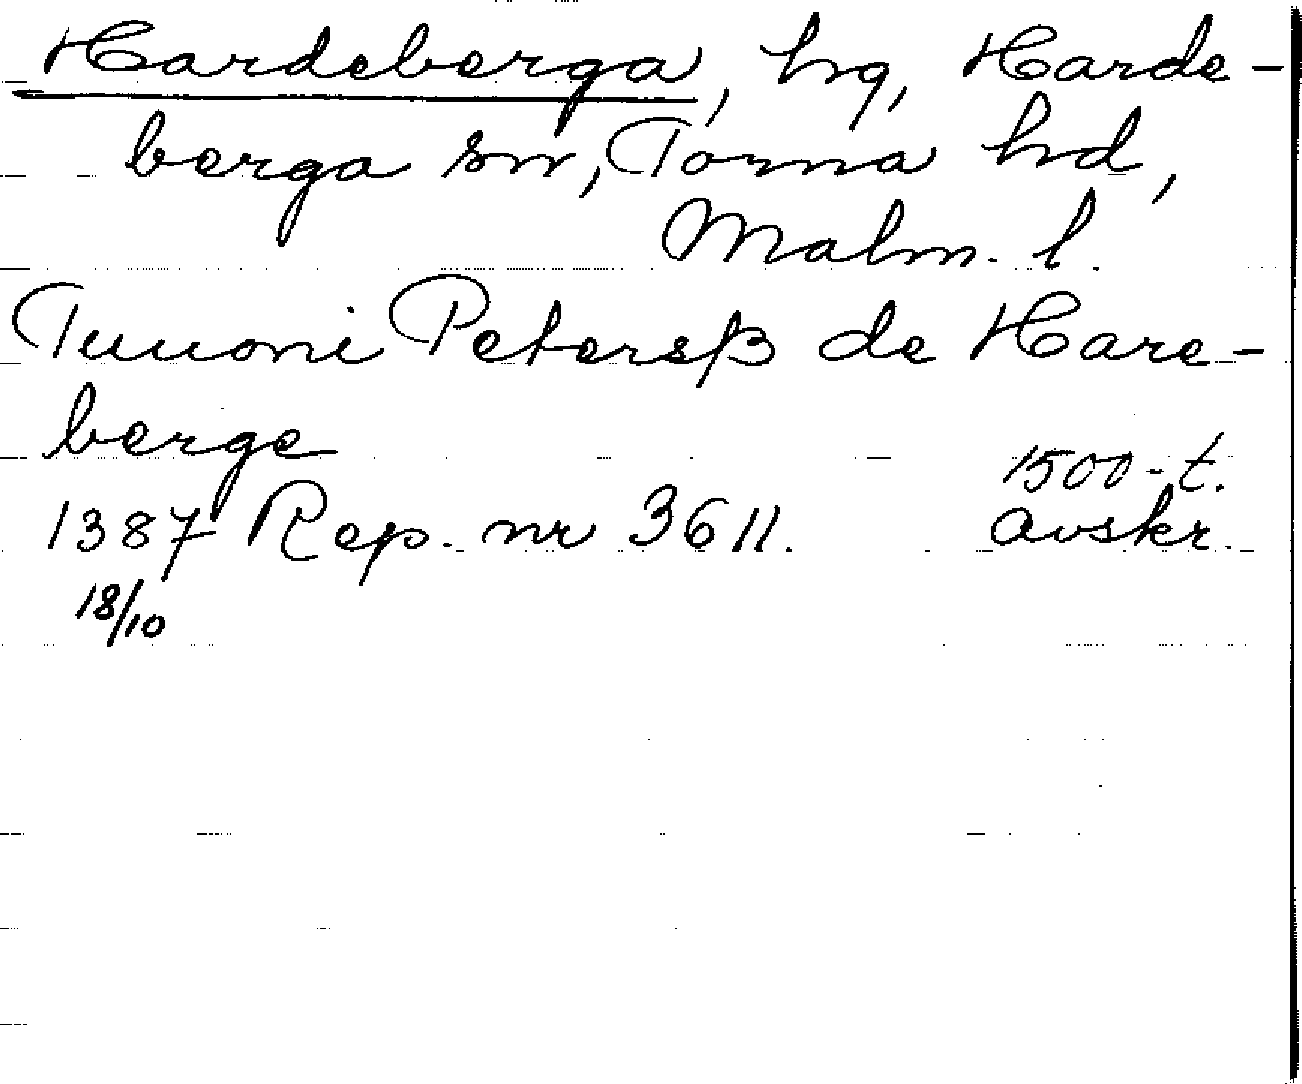 Hardeberga, hg, Harde-
berga sn, Torna hd,
Malm. l.
Tuuoni Petersß de Hare-
berge
1500-t.
1387 Rep. nr 3611. avskr.
18/10